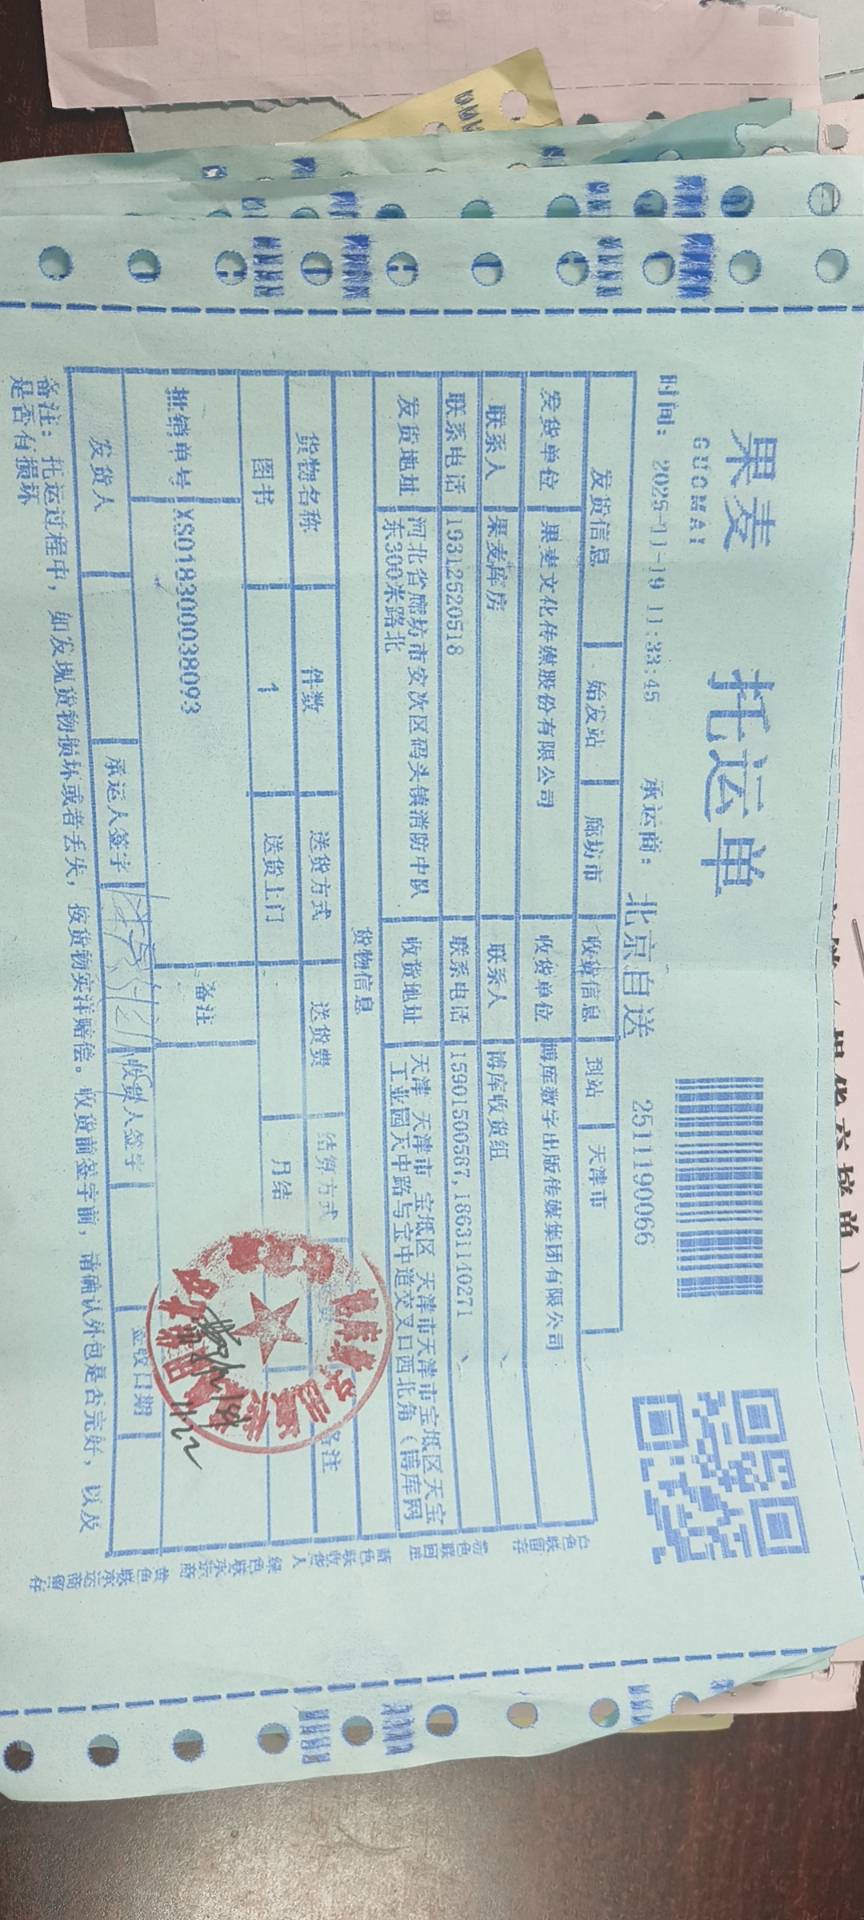 果麦
GUOMAI
托运单
时间: 2025-11-19 11:33:45 承运商: 北京自送 2511190066
发货信息 始发站 廊坊市 收货信息 到站 天津市
发货单位 果麦文化传媒股份有限公司 收货单位 博库数字出版传媒集团有限公司
联系人 果麦库房 联系人 博库收货组
联系电话 19312520518 联系电话 15901500587,18631140271
发货地址 河北省廊坊市安次区码头镇消防中队东300米路北 收货地址 天津 天津市 宝坻区 天津市天津市宝坻区天宝工业园天中路与宝中道交叉口西北角（博库网
货物信息
货物名称 件数 送货方式 送货费 结算方式 备注
图书 1 送货上门 月结
批销单号 XS018300038093 备注
发货人 承运人签字 收货人签字 签收日期
11.22
备注: 托运过程中, 如发现货物损坏或者丢失, 按货物实洋赔偿。收货前签字前, 请确认外包是否完好, 以及
是否有损坏
白色联留存
粉色联回单
蓝色联收货人
绿色联承运商
黄色联承运商留存